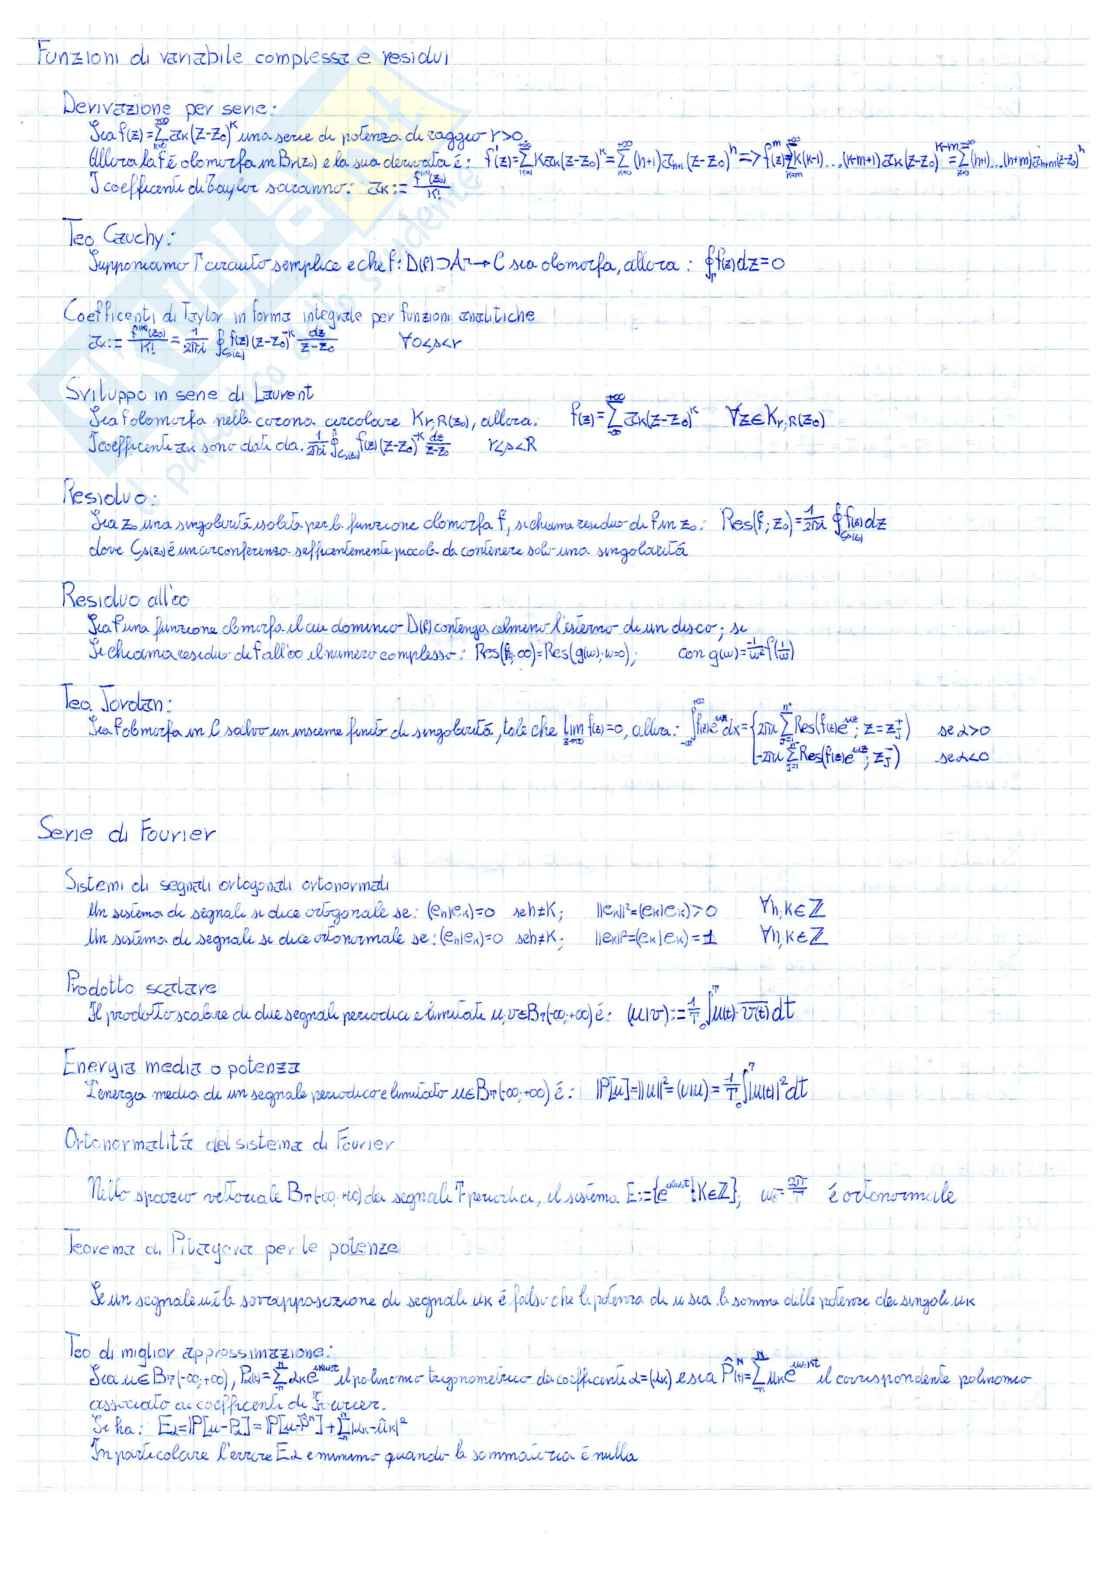 Funzioni di variabile complessa e residui
Derivazione per serie:
Sia f(z)=∑_{k=0}^{+∞} a_k(z-z_0)^k una serie di potenza di raggio r>0.
Allora la f é olomorfa in B_r(z_0) e la sua derivata é: f'(z)=∑_{k=1}^{+∞} k a_k (z-z_0)^k = ∑_{h=0}^{+∞} (h+1) a_{h+1} (z-z_0)^h => f^m(z)=∑_{k=m}^{+∞} k(k-1)...(k-m+1) a_k (z-z_0)^{k-m} = ∑^{+∞} (h+1)...(h+m) a_{h+m} (z-z_0)^h
I coefficenti di Taylor saranno: a_k := f^{(k)}(z_0)/k!
Teo Cauchy:
Supponiamo Γ circuito semplice e che f: D(f)⊃A → C sia olomorfa, allora: ∮_Γ f(z)dz=0
Coefficenti di Taylor in forma integrale per funzioni analitiche
a_k := f^{(k)}(z_0)/k! = 1/2πi ∮ f(z)(z-z_0)^{-k} dz/z-z_0 ∀0<ρ<r
Sviluppo in serie di Laurent
Sia f olomorfa nella corona circolare K_{r,R}(z_0), allora. f(z)=∑_{-∞}^{+∞} a_k(z-z_0)^k ∀z∈K_{r,R}(z_0)
I coefficenti a_k sono dati da. 1/2πi ∮ f(z)(z-z_0)^{-k} dz/z-z_0 r<ρ<R
Residuo:
Sia z_0 una singolarità isolata per la funzione olomorfa f, si chiama residuo di f in z_0: Res(f; z_0)=1/2πi ∮ f(z)dz
dove C_ρ(z_0) é una circonferenza sufficentemente piccola da contenere solo una singolarità
Residuo all'∞
Sia f una funzione olomorfa il cui dominio D(f) contenga almeno l'esterno di un disco; si
Si chiama residuo di f all'∞ il numero complesso: Res(f; ∞)=Res(g(w); w=0); con g(w)=-1/w² f(1/w)
Teo Jordan:
Sia f olomorfa in C salvo un insieme finito di singolarità, tale che lim_{z→∞} f(z)=0, allora: ∫_{-∞}^{+∞} f(x)e^{iαx}dx={2πi ∑_{j=1}^{n+} Res(f(z)e^{iαz}; z=z_j^+) se α>0
-2πi ∑_{j=1}^{n-} Res(f(z)e^{iαz}; z_j^-) se α<0
Serie di Fourier
Sistemi di segnali ortogonali ortonormali
Un sistema di segnali si dice ortogonale se: (e_h|e_k)=0 se h≠k; ||e_k||²=(e_k|e_k)>0 ∀h,k∈ℤ
Un sistema di segnali si dice ortonormale se: (e_h|e_k)=0 se h≠k; ||e_k||²=(e_k|e_k)=1 ∀h,k∈ℤ
Prodotto scalare
Il prodotto scalare di due segnali periodici e limitati u,v∈B_T(-∞,+∞) é: (u|v):=1/T ∫_0^T u(t)·\overline{v(t)} dt
Energia media o potenza
L'energia media di un segnale periodico e limitato u∈B_T(-∞,+∞) é: ℙ[u]=||u||²=(u|u)=1/T ∫_0^T |u(t)|² dt
Ortonormalità del sistema di Fourier
Nello spazio vettoriale B_T(-∞,+∞) dei segnali T periodici, il sistema E:={e^{ikω_0t}|k∈ℤ}; ω_0=2π/T é ortonormale
Teorema di Pitagora per le potenze
Se un segnale u é la sovrapposizione di segnali u_k é falso che la potenza di u sia la somma delle potenze dei singoli u_k
Teo di miglior approssimazione:
Sia u∈B_T(-∞,+∞), P_α(t)=∑_{-n}^{n} α_k e^{ikω_0t} il polinomio trigonometrico dei coefficenti α=(α_k) e sia P̂^N(t)=∑_{-N}^{N} û_k e^{iω_0kt} il corrispondente polinomio
associato ai coefficenti di Fourier.
Si ha: E_α=ℙ[u-P_α]=ℙ[u-P̂^n]+∑_{-n}^{n}|α_k-û_k|²
In particolare l'errore E_α é minimo quando la sommatoria é nulla